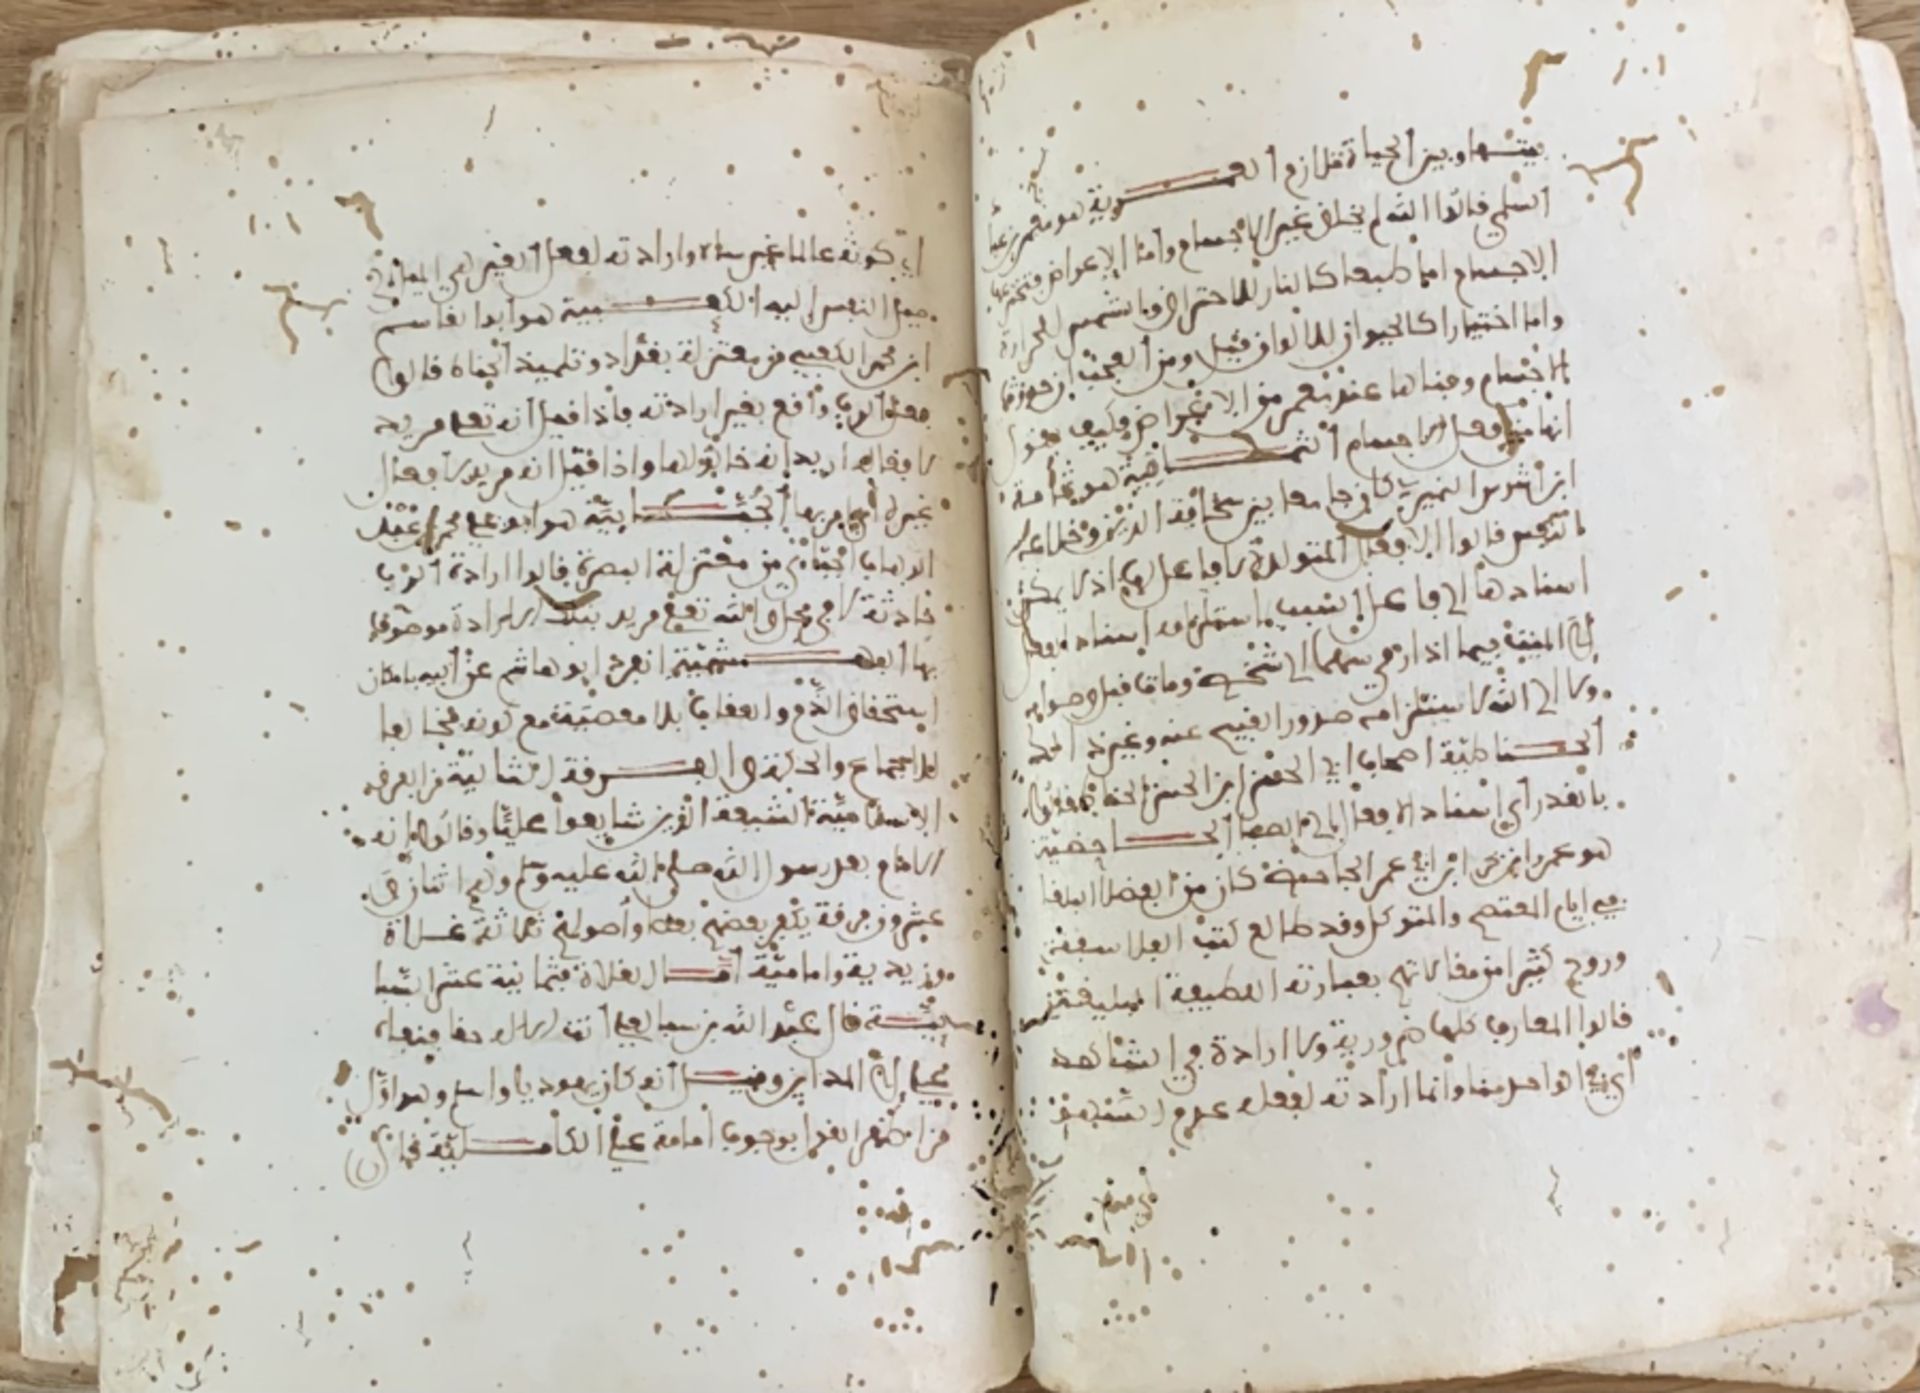 بينها وبين الحياة تلازم المعمرية هو معمر بن عباد
السلمي قالوا الله لم يخلق غير الاجسام واما الاعراض فتخترعها
الاجسام اما طبعا كالنار للاحتراق والشمس للحرارة
واما اختيارا كالحيوان للالوان قيل ومن العجب ان حدوث
الاجسام وفناها عند معمر من الاعراض فكيف يقول
انها من فعل الاجسام الثمامية هو ثمامة
ابن اشرس النميري كان جامعا بين سخافة الدين وخلاعة
النفس قالوا الافعال المتولدة لا فاعل لها اذ لا يمكن
اسنادها الى فاعل السبب لاستلزامه اسناد الفعل
الى الميت فيما اذا رمى سهما الى شخص ومات قبل وصوله
ولا الى الله لاستلزامه صدور القبيح عنه
الخياطية اصحاب ابي الحسن ابن الخياط قالوا
بالقدر اي اسناد الافعال الى العباد الجاحظية
هو عمرو ابن بحر الجاحظ كان من الفضلا البلغا
في ايام المعتصم والمتوكل وقد طالع كتب الفلاسفة
وروج كثيرا من مقالاتهم بعباراته اللطيفة البليغة
قالوا المعارف كلها ضرورية ولا ارادة في الشاهد
اي في الواحد منا وانما ارادته لفعله عدم السهو
اي كونه عالما غير ساه وارادته لفعل الغير هي
ميل النفس اليه الكعبية هو ابو القاسم
ابن محمد الكعبي من معتزلة بغداد وتلميذ الخياط قالوا
فعل الرب واقع بغير ارادته فاذا قيل انه تعلى مريد
لافعاله اريد انه خالق لها واذا قيل انه مريد لافعال
غيره اي امر بها الجبائية هو ابو علي محمد بن عبد
الوهاب الجبائي من معتزلة البصرة قالوا ارادة الرب
حادثة لا في محل والله تعلى مريد بتلك الارادة موصوف
بها البهشمية انفرد ابو هاشم عن ابيه بامكان
استحقاق الذم والعقاب بلا معصية مع كونه مخالفا
للاجماع والحكمة الفرقة الثانية من الفرق
الاسلامية الشيعة الذين شايعوا عليا وقالوا انه
الامام بعد رسول الله صلى الله عليه وسلم وهم اثنان و
عشرون فرقة يكفر بعضهم بعضا واصولهم ثلاثة غلاة
وزيدية وامامية اما الغلاة فثمانية عشر السبا
ئية قال عبد الله بن سبا لعلي انت الاله حقا فنفاه
علي الى المداين وقيل انه كان يهوديا واسلم وهو اول
من اظهر القول بوجوب امامة علي الكاملية قال